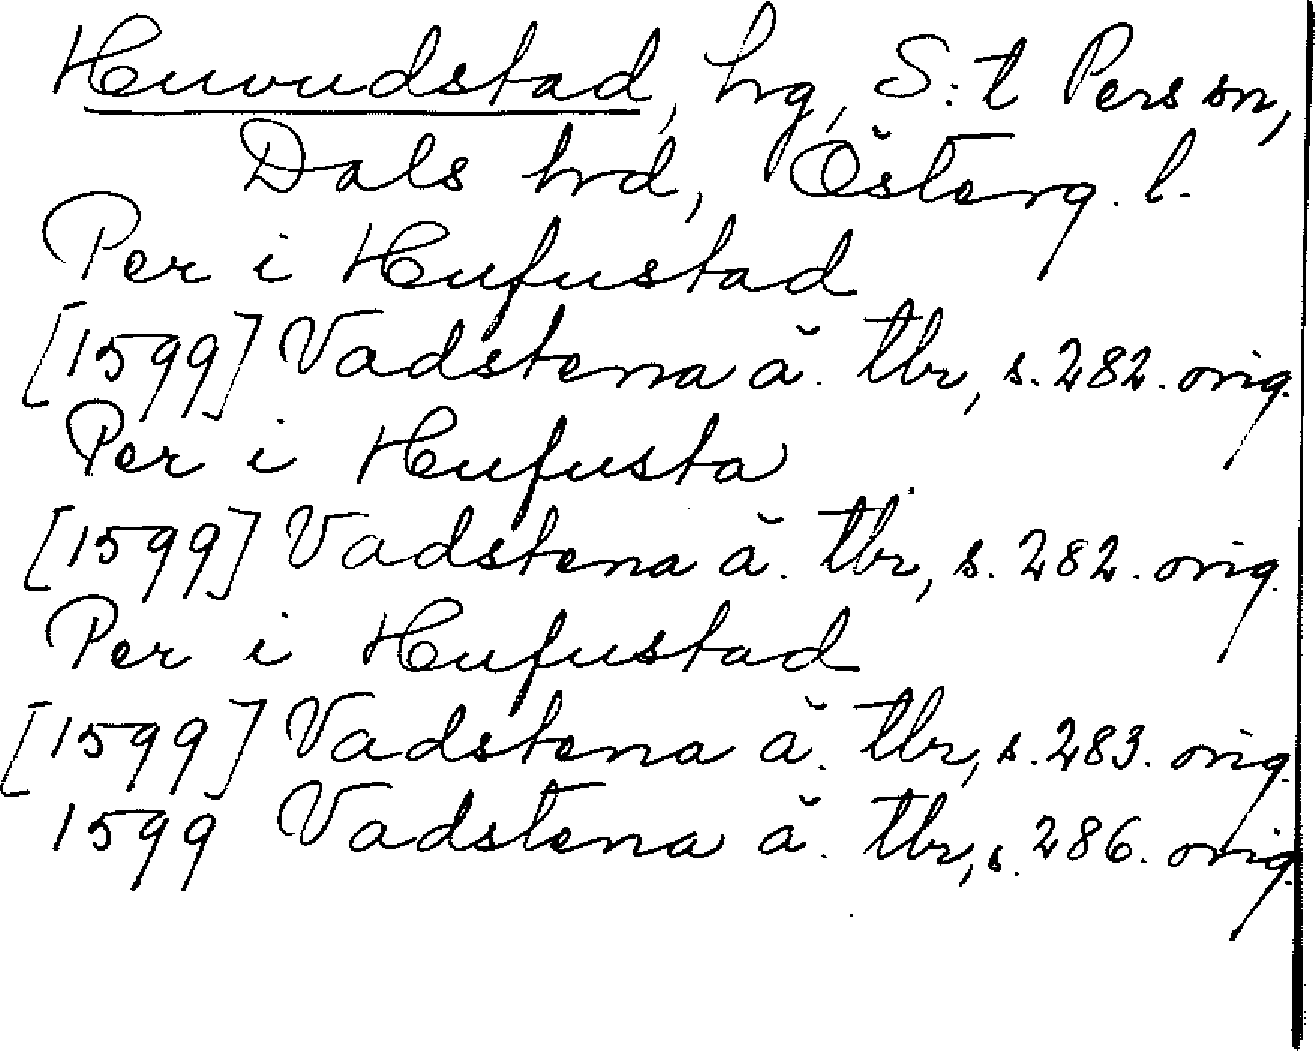 Huvudstad, hg, S:t Pers sn,
Dals hrd, Österg. l.
Per i Hufustad
[1599] Vadstena ä. tbr, s. 282. orig.
Per i Hufusta
[1599] Vadstena ä. tbr, s. 282. orig.
Per i Hufustad
[1599] Vadstena ä. tbr, s. 283. orig.
1599 Vadstena ä. tbr, s. 286. orig.